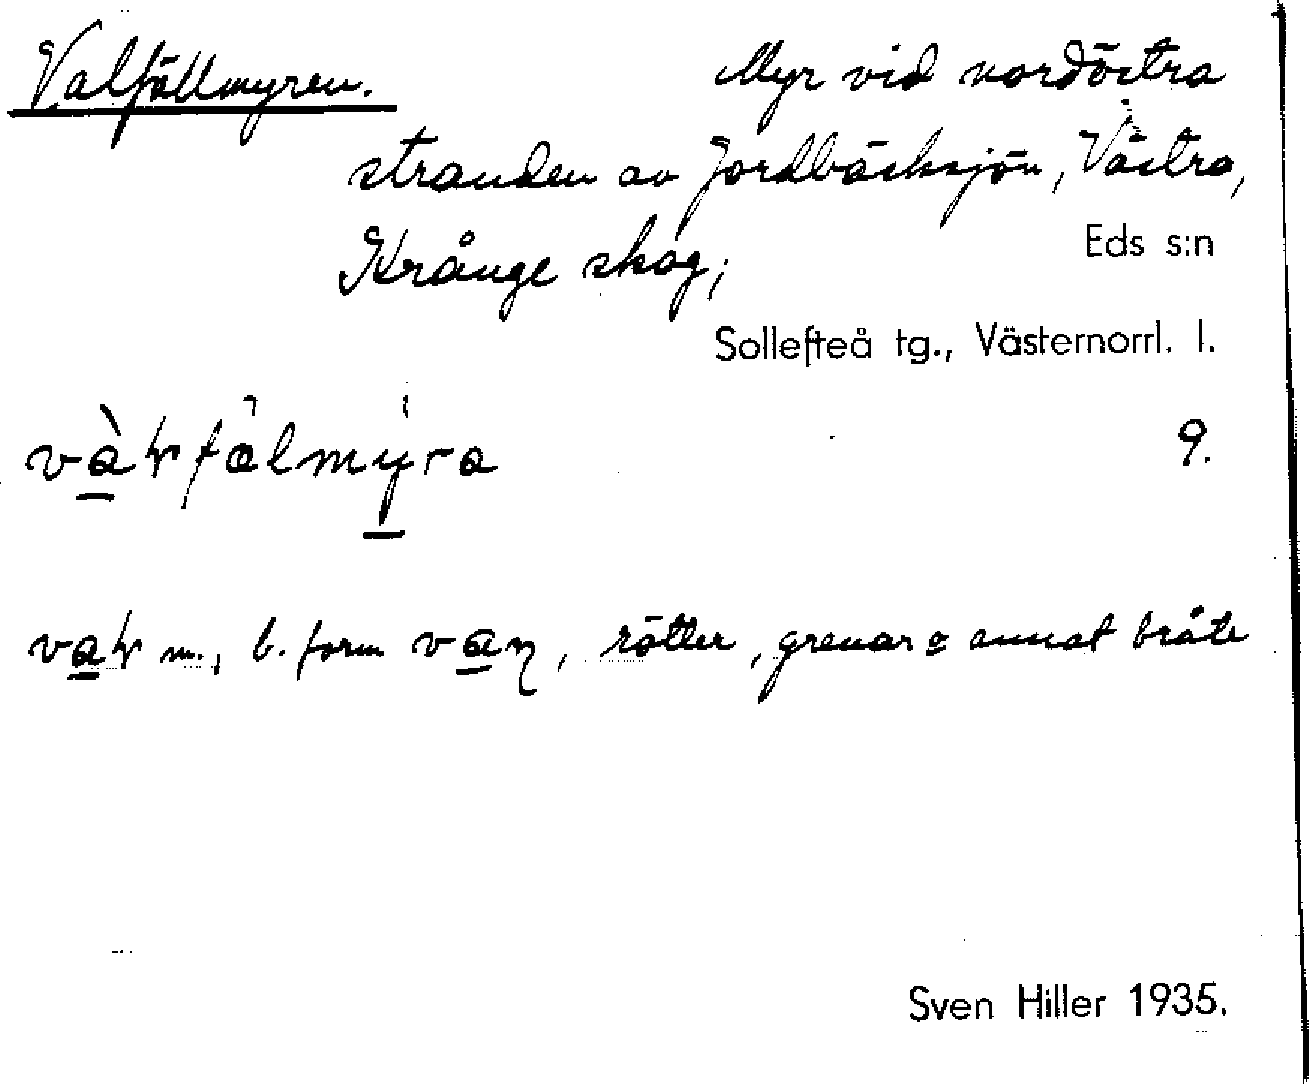 Valfällmyren. Myr vid nordöstra
stranden av Jordbäcksjön, Västra,
Krånge skog; Eds s:n
Sollefteå tg., Västernorrl. l.
9.
m., b. form rötter, grenar o annat bråte
Sven Hiller 1935.